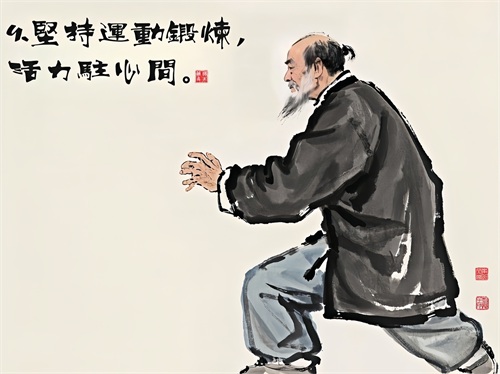 堅持運動鍛煉，
活力駐心間。